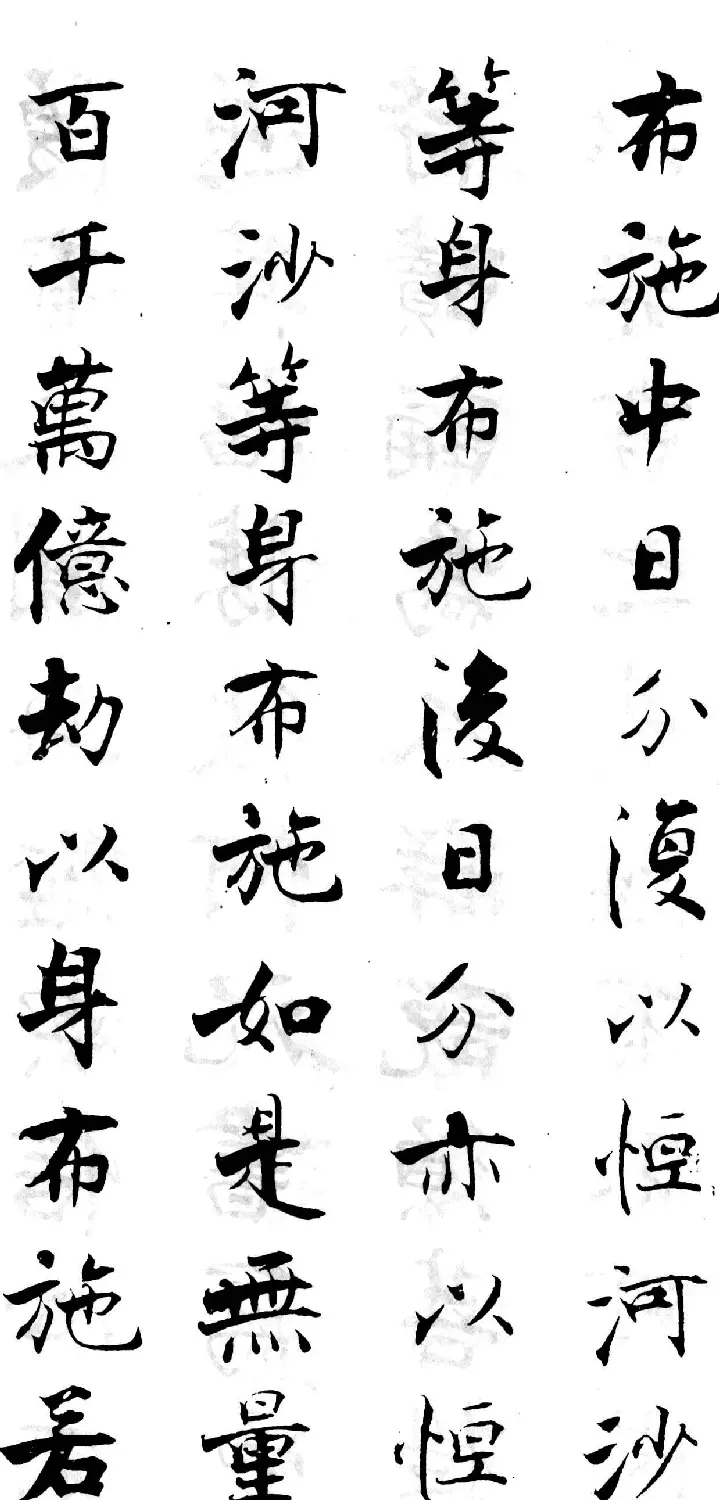 布施中日分復以恒河沙
等身布施後日分亦以恒
河沙等身布施如是無量
百千萬億劫以身布施若